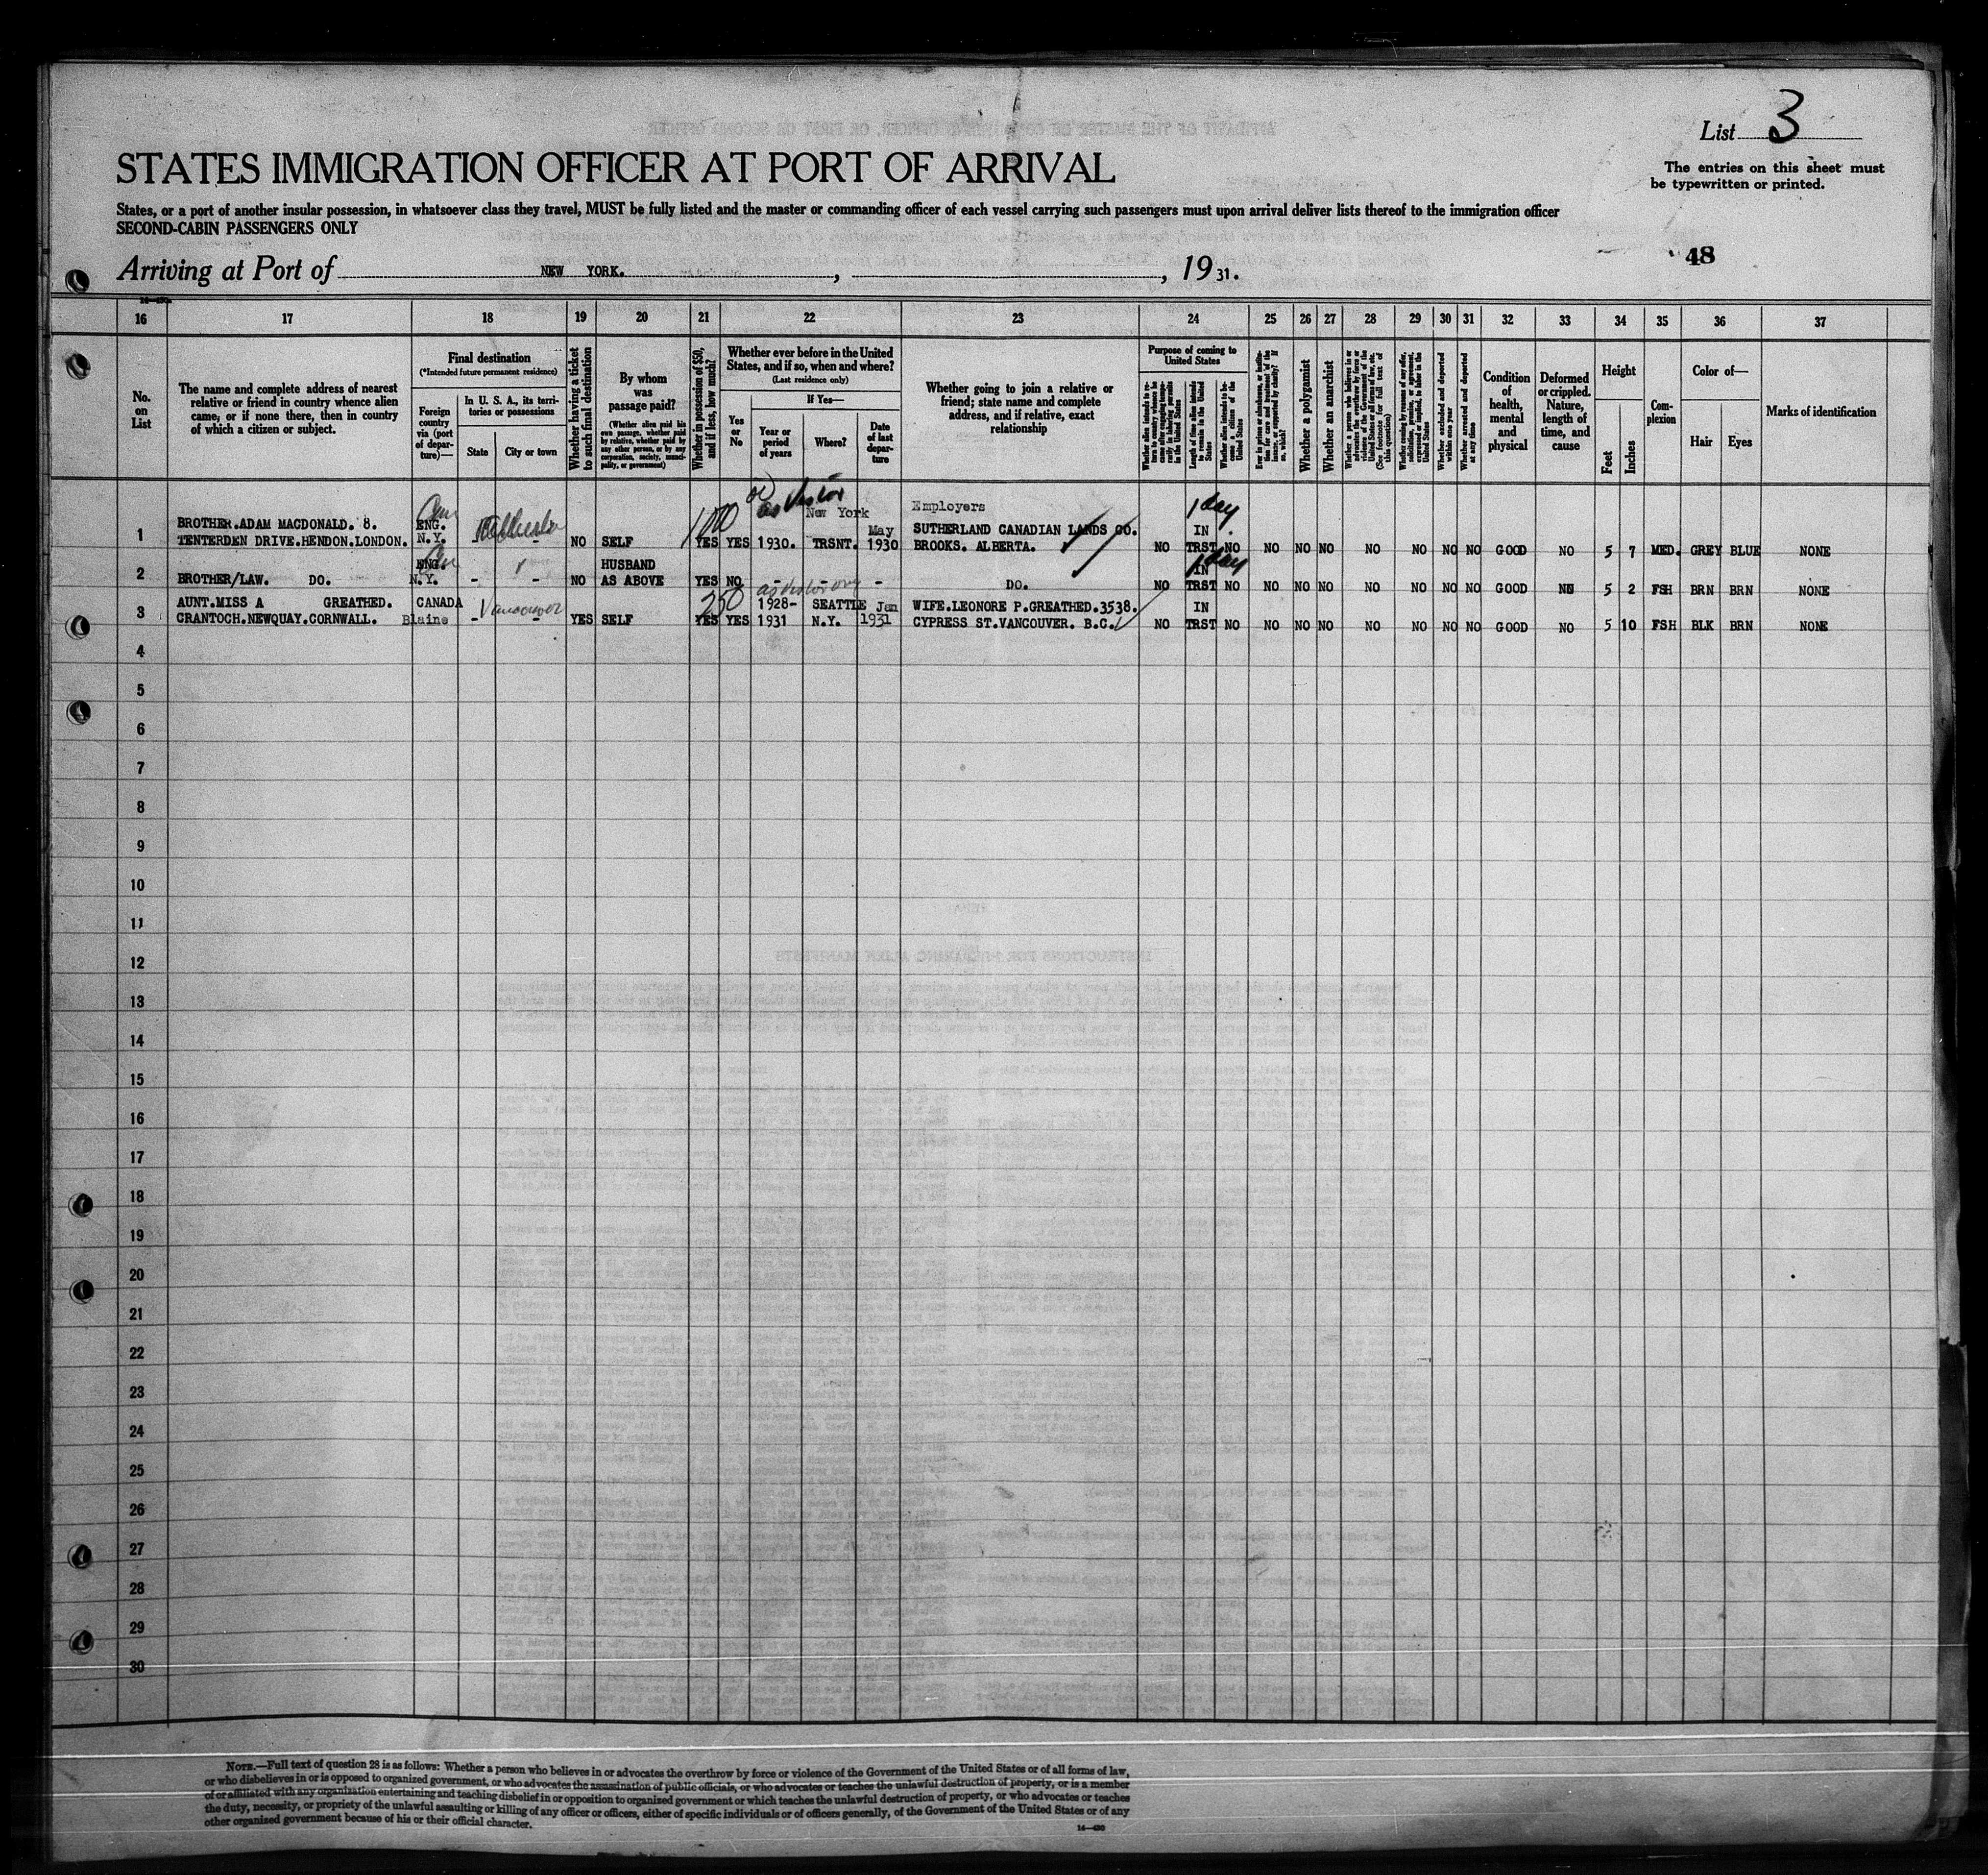 List 3
STATES IMMIGRATION OFFICER AT PORT OF ARRIVAL
The entries on this sheet must
be typewritten or printed.
States, or a port of another insular possession, in whatsoever class they travel, MUST be fully listed and the master or commanding officer of each vessel carrying such passengers must upon arrival deliver lists thereof to the immigration officer
SECOND-CABIN PASSENGERS ONLY
48
Arriving at Port of NEW YORK. , , 19 31.
16 17 18 19 20 21 22 23 24 25 26 27 28 29 30 31 32 33 34 35 36 37
No. on List
The name and complete address of nearest
relative or friend in country whence alien
came, or if none there, then in country
of which a citizen or subject.
Final destination
(*Intended future permanent residence)
Foreign country via (port of departure)—
In U. S. A., its territories or possessions
State
City or town
Whether having a ticket to such final destination
By whom was passage paid?
(Whether alien paid his own passage, whether paid by relative, whether paid by any other person, or by any corporation, society, municipality, or government)
Whether in possession of $50, and if less, how much?
Whether ever before in the United
States, and if so, when and where?
(Last residence only)
Yes or No
If Yes—
Year or period of years
Where?
Date of last departure
Whether going to join a relative or
friend; state name and complete
address, and if relative, exact
relationship
Purpose of coming to United States
Length of time alien intends to remain in the United States
Whether alien intends to become a citizen of the United States
Whether a polygamist
Whether an anarchist
Whether excluded and deported within one year
Whether arrested and deported at any time
Condition of health, mental and physical
Deformed or crippled. Nature, length of time, and cause
Height
Feet
Inches
Complexion
Color of—
Hair
Eyes
Marks of identification
as visitor
New York
Employers
1 day
1 BROTHER.ADAM MACDONALD. 8. ENG. 1000 May SUTHERLAND CANADIAN LANDS CO. IN
TENTERDEN DRIVE.HENDON.LONDON. N.Y. - - NO SELF YES YES 1930. TRSNT. 1930 BROOKS. ALBERTA. NO TRST NO NO NO NO NO NO NO NO GOOD NO 5 7 MED. GREY BLUE NONE
ENG. HUSBAND 1 day IN
2 BROTHER/LAW. DO. N.Y. - - NO AS ABOVE YES NO - - - DO. NO TRST NO NO NO NO NO NO NO NO GOOD NO 5 2 FSH BRN BRN NONE
3 AUNT.MISS A GREATHED. CANADA Vancouver 250 1928- SEATTLE Jan WIFE.LEONORE P.GREATHED.3538. IN
CRANTOCH.NEWQUAY.CORNWALL. Blaine - - YES SELF YES YES 1931 N.Y. 1931 CYPRESS ST.VANCOUVER. B.C. NO TRST NO NO NO NO NO NO NO NO GOOD NO 5 10 FSH BLK BRN NONE
4
5
6
7
8
9
10
11
12
13
14
15
16
17
18
19
20
21
22
23
24
25
26
27
28
29
30
NOTE.—Full text of question 28 is as follows: Whether a person who believes in or advocates the overthrow by force or violence of the Government of the United States or of all forms of law,
or who disbelieves in or is opposed to organized government, or who advocates the assassination of public officials, or who advocates or teaches the unlawful destruction of property, or is a member
of or affiliated with any organization entertaining and teaching disbelief in or opposition to organized government or which teaches the unlawful destruction of property, or who advocates or teaches
the duty, necessity, or propriety of the unlawful assaulting or killing of any officer or officers, either of specific individuals or of officers generally, of the Government of the United States or of any
other organized government because of his or their official character.
14—430